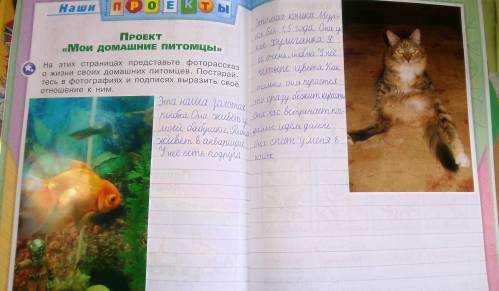 Наши ПРОЕКТЫ
ПРОЕКТ
«МОИ ДОМАШНИЕ ПИТОМЦЫ»
На этих страницах представьте фоторассказ
о жизни своих домашних питомцев. Постарай-
тесь в фотографиях и подписях выразить своё
отношение к ним.
Эта наша золотая
рыбка. Она живёт у
моей бабушки. Рыбка
живёт в аквариуме.
У неё есть подруга.
Это наша кошка
ей 1,5 года. Она у
нас Хулиганка. Я
её очень люблю. У неё
четыре цвета. Как
она сразу бежит
Она нас встречает
Она спит у меня в
ногах